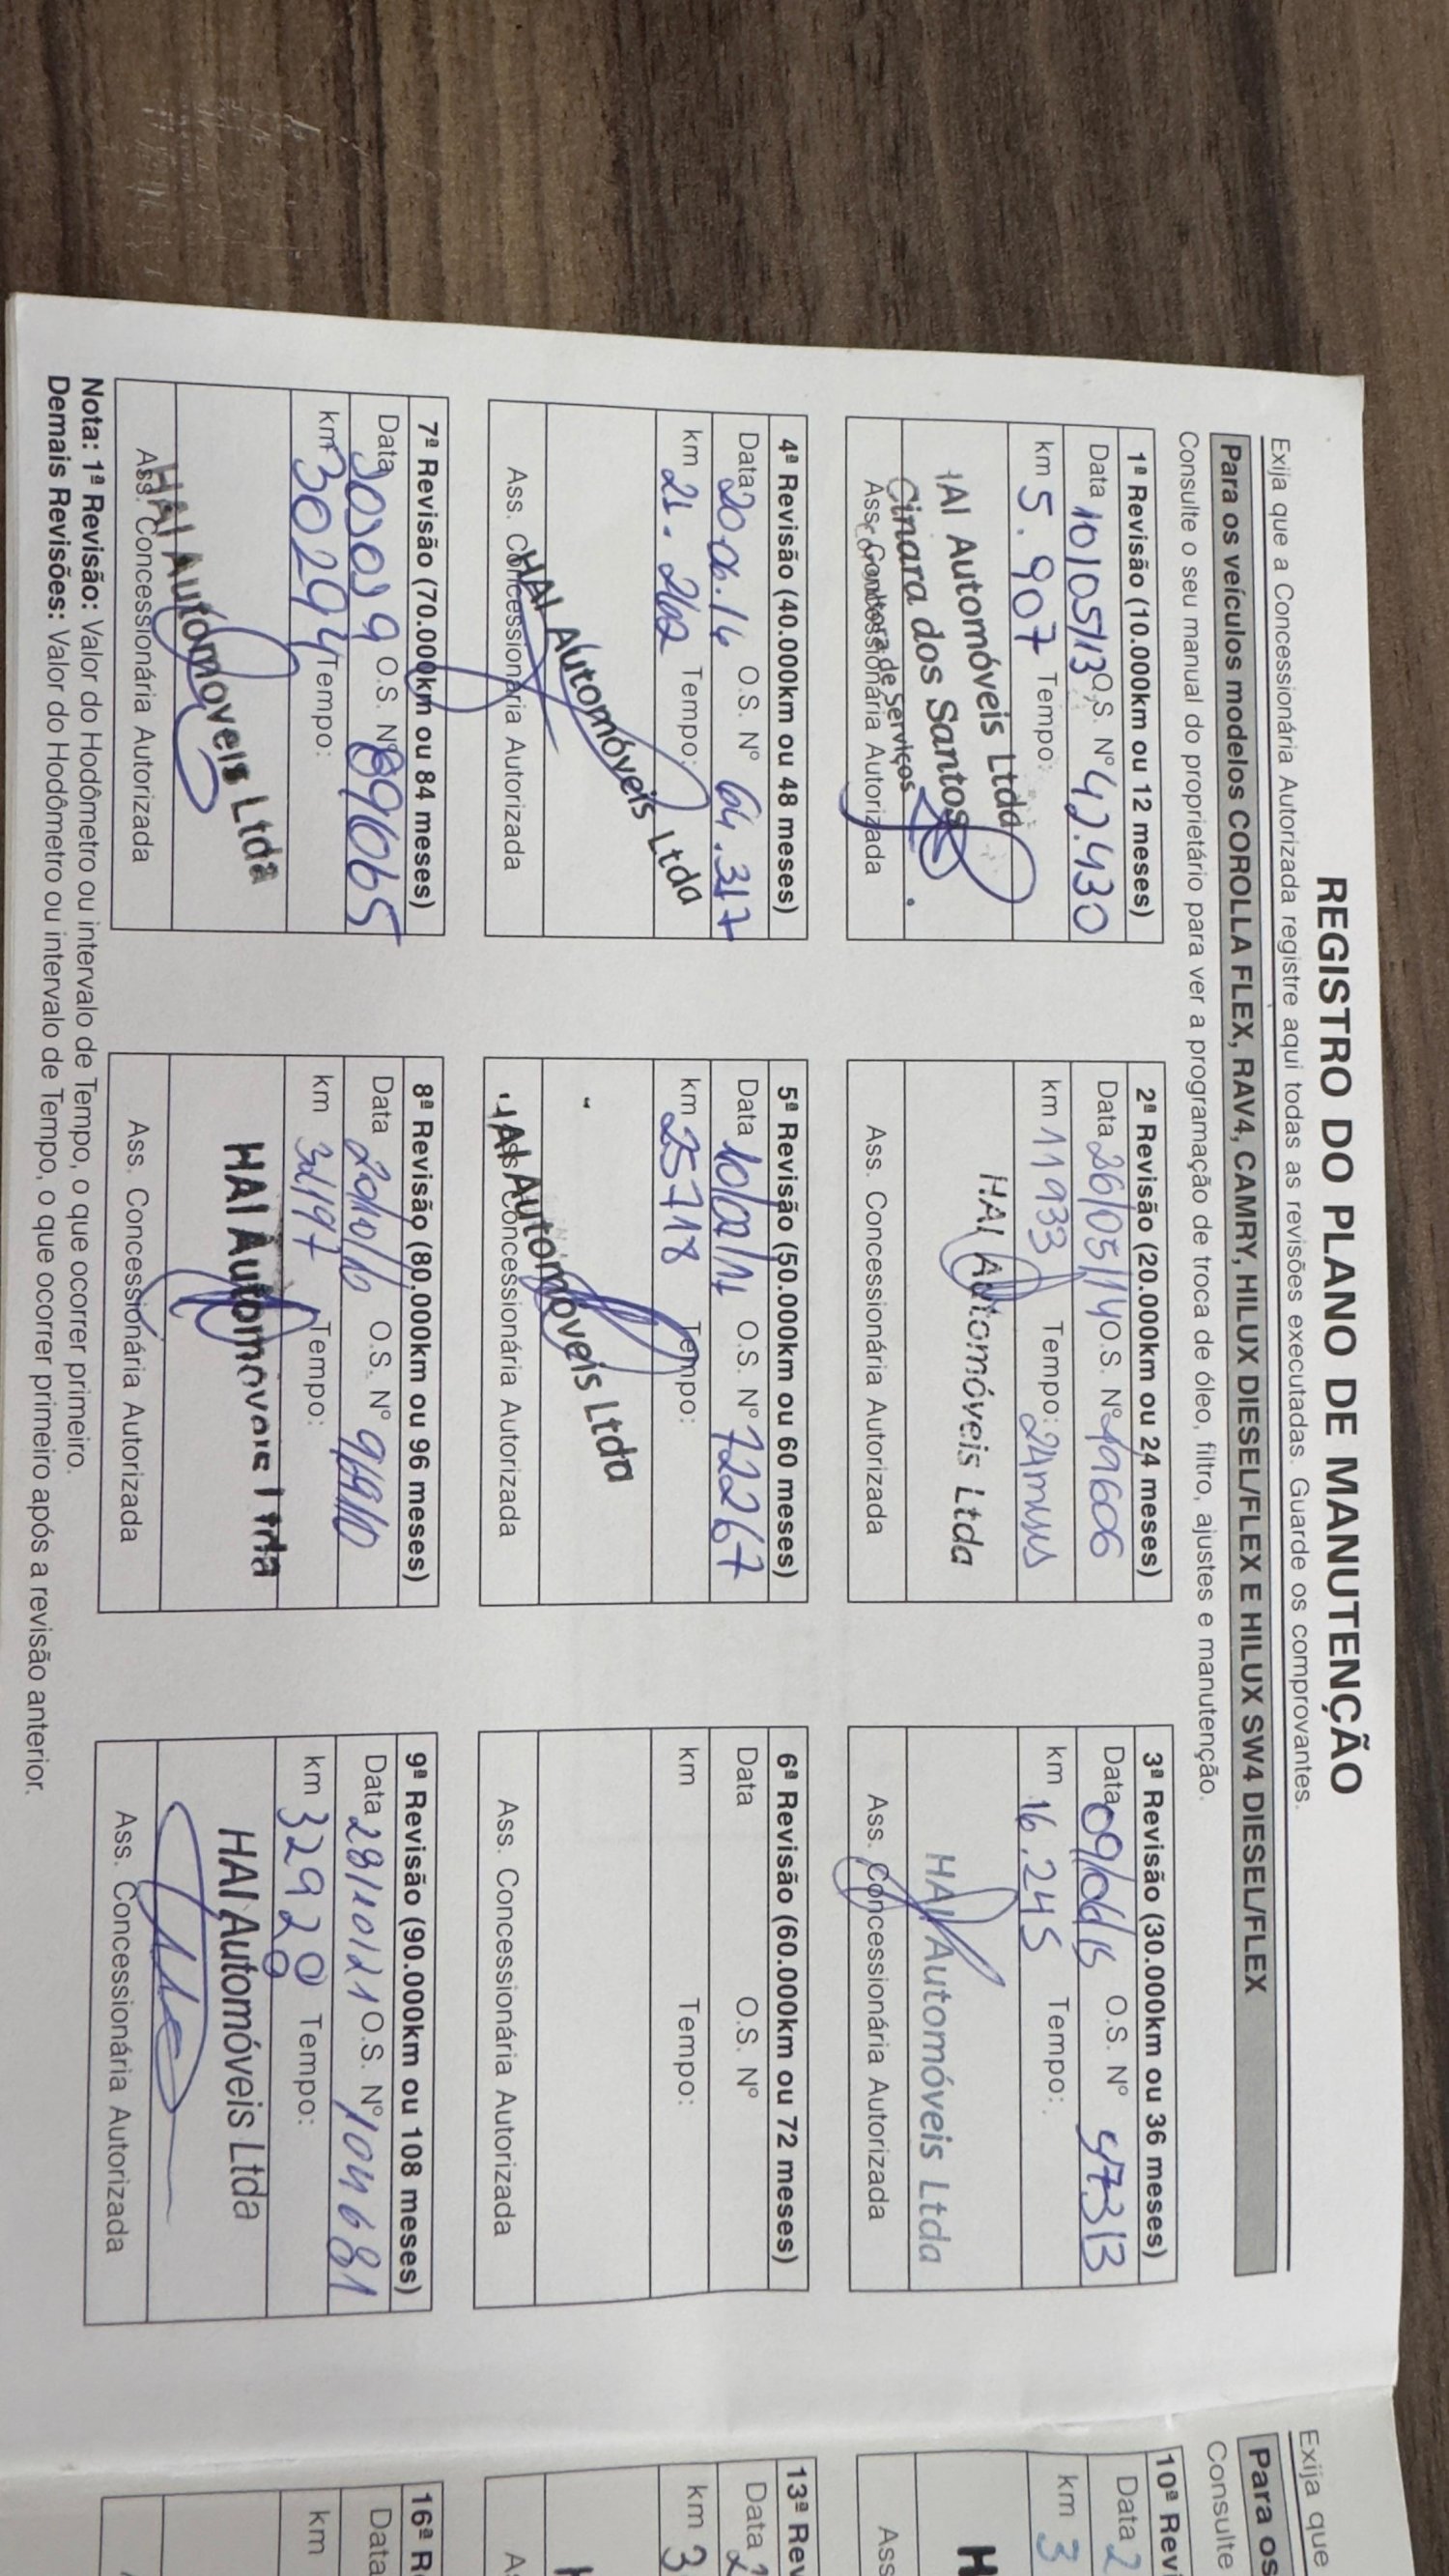 REGISTRO DO PLANO DE MANUTENÇÃO
Exija que a Concessionária Autorizada registre aqui todas as revisões executadas. Guarde os comprovantes.
Para os veículos modelos COROLLA FLEX, RAV4, CAMRY, HILUX DIESEL/FLEX E HILUX SW4 DIESEL/FLEX
Consulte o seu manual do proprietário para ver a programação de troca de óleo, filtro, ajustes e manutenção.
1ª Revisão (10.000km ou 12 meses)
Data 10/05/13 O.S. Nº 42.430
km 5.907 Tempo:
HAI Automóveis Ltda
Cinara dos Santos
Consultora de Serviços
Ass. Concessionária Autorizada
2ª Revisão (20.000km ou 24 meses)
Data 26/05/14 O.S. Nº
km 11933 Tempo: 24
HAI Automóveis Ltda
Ass. Concessionária Autorizada
3ª Revisão (30.000km ou 36 meses)
Data O.S. Nº 57313
km 16.245 Tempo:
HAI Automóveis Ltda
Ass. Concessionária Autorizada
4ª Revisão (40.000km ou 48 meses)
Data 20.06.16 O.S. Nº 64.317
km 21.262 Tempo:
HAI Automóveis Ltda
Ass. Concessionária Autorizada
5ª Revisão (50.000km ou 60 meses)
Data O.S. Nº 72267
km 25718 Tempo:
HAI Automóveis Ltda
Ass. Concessionária Autorizada
6ª Revisão (60.000km ou 72 meses)
Data O.S. Nº
km Tempo:
Ass. Concessionária Autorizada
7ª Revisão (70.000km ou 84 meses)
Data O.S. Nº 89665
km 30294 Tempo:
HAI Automóveis Ltda
Ass. Concessionária Autorizada
8ª Revisão (80.000km ou 96 meses)
Data O.S. Nº
km Tempo:
HAI Automóveis Ltda
Ass. Concessionária Autorizada
9ª Revisão (90.000km ou 108 meses)
Data 28/10/21 O.S. Nº 104681
km 32920 Tempo:
HAI Automóveis Ltda
Ass. Concessionária Autorizada
Nota: 1ª Revisão: Valor do Hodômetro ou intervalo de Tempo, o que ocorrer primeiro.
Demais Revisões: Valor do Hodômetro ou intervalo de Tempo, o que ocorrer primeiro após a revisão anterior.
Exija que
Para os
Consulte
10ª Revi
Data 2
km 3
H
Ass
13ª Rev
Data 2
km 3
16ª R
Data
km